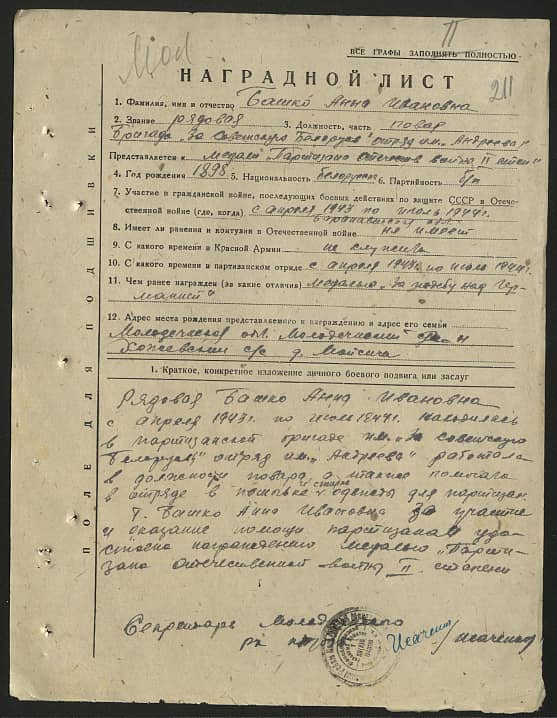 ВСЕ ГРАФЫ ЗАПОДНЯТЬ ПОЛНОСТЬЮ
211
НАГРАДНОЙ ЛИСТ
1. Фамилия, имя и отчество Башко Анна Ивановна
2. Звание рядовая 3. Должность, часть повар
Бригада "За Советскую Белорусс" отряд им. Андреева
Представляется к медали "Партизана Отечеств войны II степ"
4. Год рождения 1898 5. Национальность Белоруска 6. Партийность б/п
7. Участие в гражданской войне, последующих боевых действиях по защите СССР в Отече-
ственной войне (где, когда) с апреля 1943 по июль 1944г.
8. Имеет ли ранения и контузии в Отечественной войне не имеет
9. С какого времени в Красной Армии не служила
10. С какого времени в партизанском отряде с апреля 1943г. по июль 1944г.
11. Чем ранее награжден (за какие отличия) медалью "За победу над Гер-
манией"
12. Адрес места рождения представляемого к награждению и адрес его семьи
Молодечненск обл. Молодечненский р-н
с/с д.
1. Краткое, конкретное изложение личного боевого подвига или заслуг
Рядовая Башко Анна Ивановна
с апреля 1943г. по июль 1944г. находилась
в партизанской бригаде им. "За советскую
Белоруссию" отряд им. "Андреева" работала
в должности повара а также помогала
в отряде в пошивке и стирке одежды для партизан.
Т. Башко Анна Ивановна за участие
и оказание помощи партизанам удо-
стоена награждению медалью "Парти-
зана Отечественной войны II степени
Секретарь
Исаченко
ПОЛЕ ДЛЯ ПОДШИВКИ